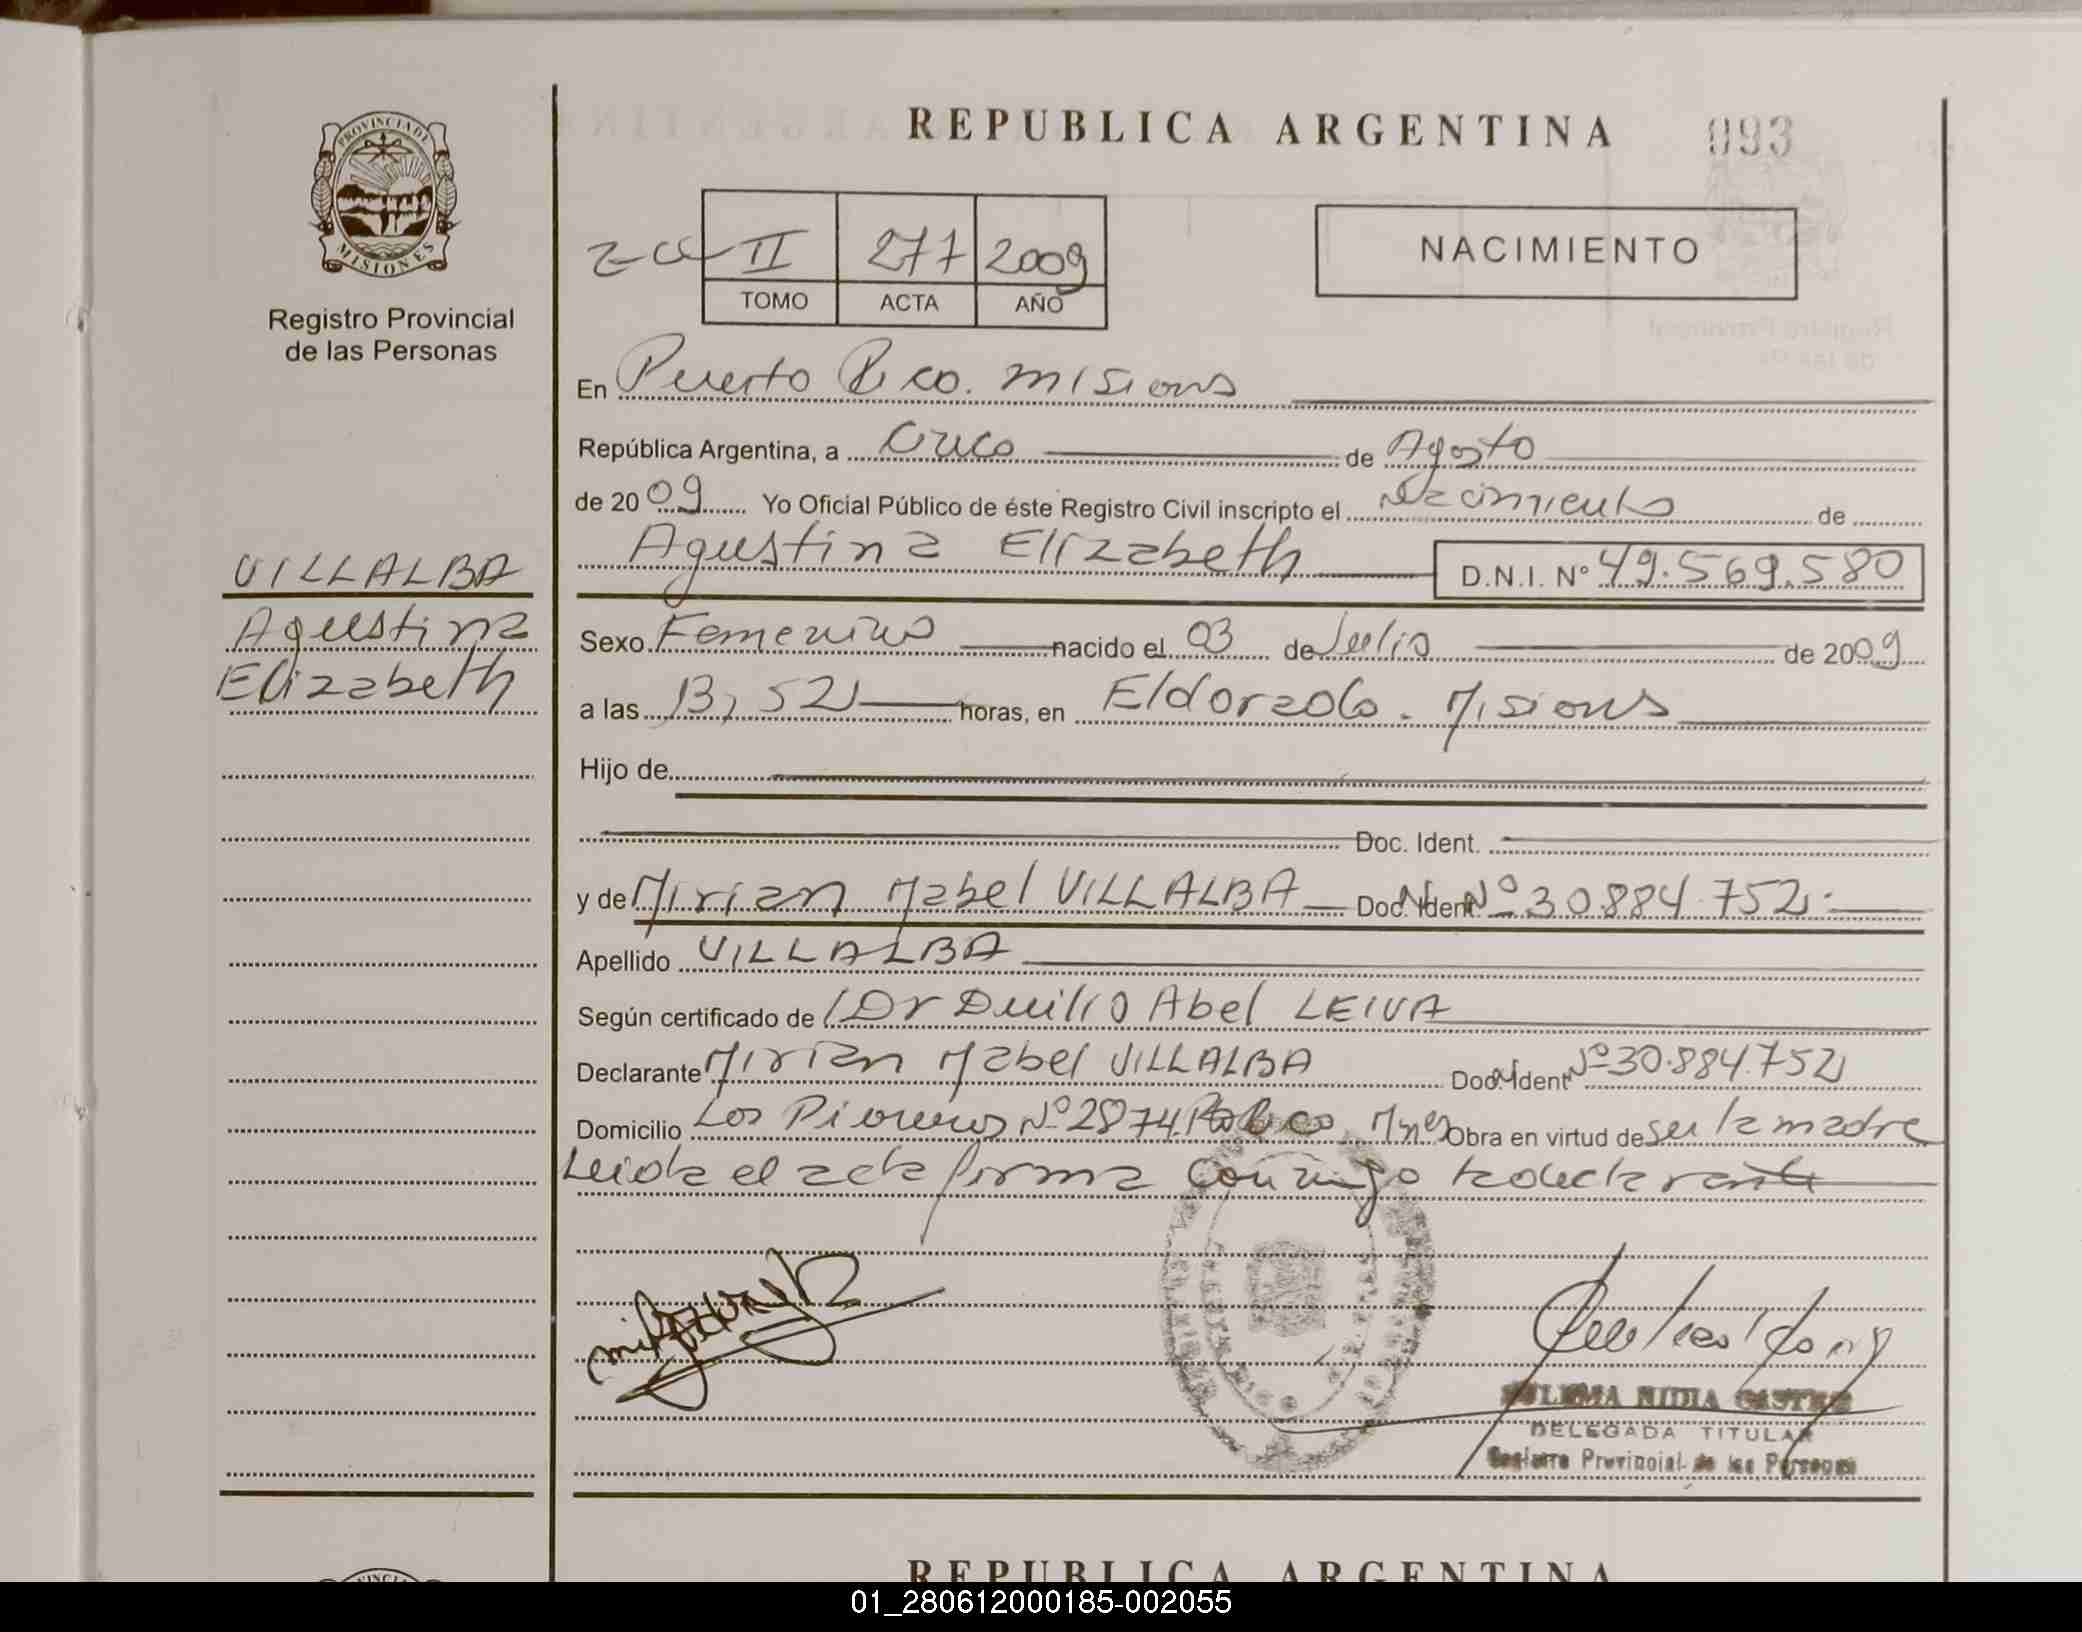 REPUBLICA ARGENTINA 093
PROVINCIA DE
MISIONES
Registro Provincial
de las Personas
II 277 2009
TOMO ACTA AÑO
NACIMIENTO
En Puerto Rico. Misiones
República Argentina, a Cinco de Agosto
de 2009 Yo Oficial Público de éste Registro Civil inscripto el Nacimiento de
Agustina Elizabeth D.N.I. N° 49.569.580
VILLALBA
Agustina
Elizabeth
Sexo Femenino nacido el 03 de Julio de 2009
a las 13,52 horas, en Eldorado. Misiones
Hijo de
Doc. Ident.
y de Mirian Mabel VILLALBA Doc. Ident. Nº 30.884.752.
Apellido VILLALBA
Según certificado de Dr Duilio Abel LEIVA
Declarante Mirian Mabel VILLALBA Doc. Ident Nº 30.884.752
Domicilio Los Pioneros Nº 2874 Pto Rico Mnes Obra en virtud de ser la madre
Leida el acta firma conmigo la declarante
ZULEMA NIDIA
DELEGADA TITULAR
Registro Provincial de las Personas
REPUBLICA ARGENTINA
01_280612000185-002055